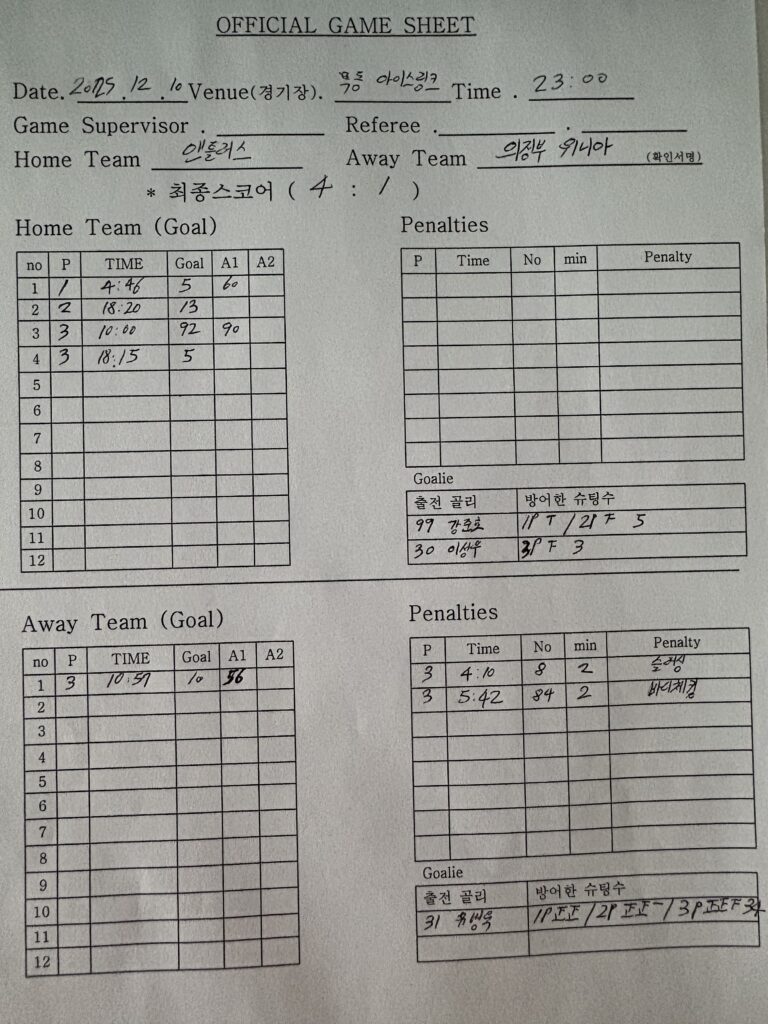 OFFICIAL GAME SHEET
Date. 2025 . 12 . 10 Venue(경기장). 목동 아이스링크 Time . 23:00
Game Supervisor . Referee . .
Home Team 앤틀러스 Away Team 의정부 위니아 (확인서명)
* 최종스코어 ( 4 : 1 )
Home Team (Goal) Penalties
no P TIME Goal A1 A2 P Time No min Penalty
1 1 4:46 5 60
2 2 18:20 13
3 3 10:00 92 90
4 3 18:15 5
5
6
7
8
9
10
11
12
Goalie
출전 골리 방어한 슈팅수
99 강
1P T / 2P F 5
30 이상
3P F 3
Away Team (Goal) Penalties
no P TIME Goal A1 A2 P Time No min Penalty
1 3 10:57 10 56 3 4:10 8 2 슬래싱
2 3 5:42 84 2 바디체킹
3
4
5
6
7
8
9
10
11
12
Goalie
출전 골리 방어한 슈팅수
31
1P 正正 / 2P 正正一 / 3P 正正F 34